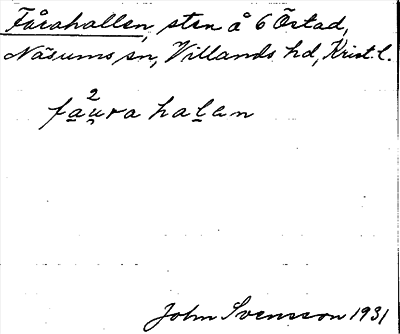 Fårahallen, sten å 6 Östad,
Näsums sn, Villands hd, Krist. l.
2
fau̯ra halan
John Svensson 1931